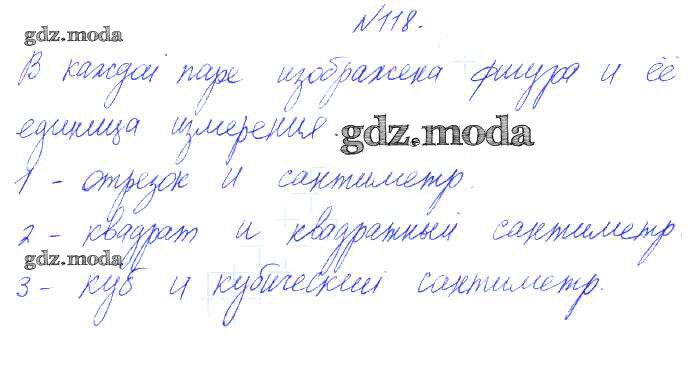 №118.
gdz.moda
В каждой паре изображена фигура и её
единица измерения.
gdz.moda
1 - отрезок и сантиметр.
2 - квадрат и квадратный сантиметр.
gdz.moda
3 - куб и кубический сантиметр.